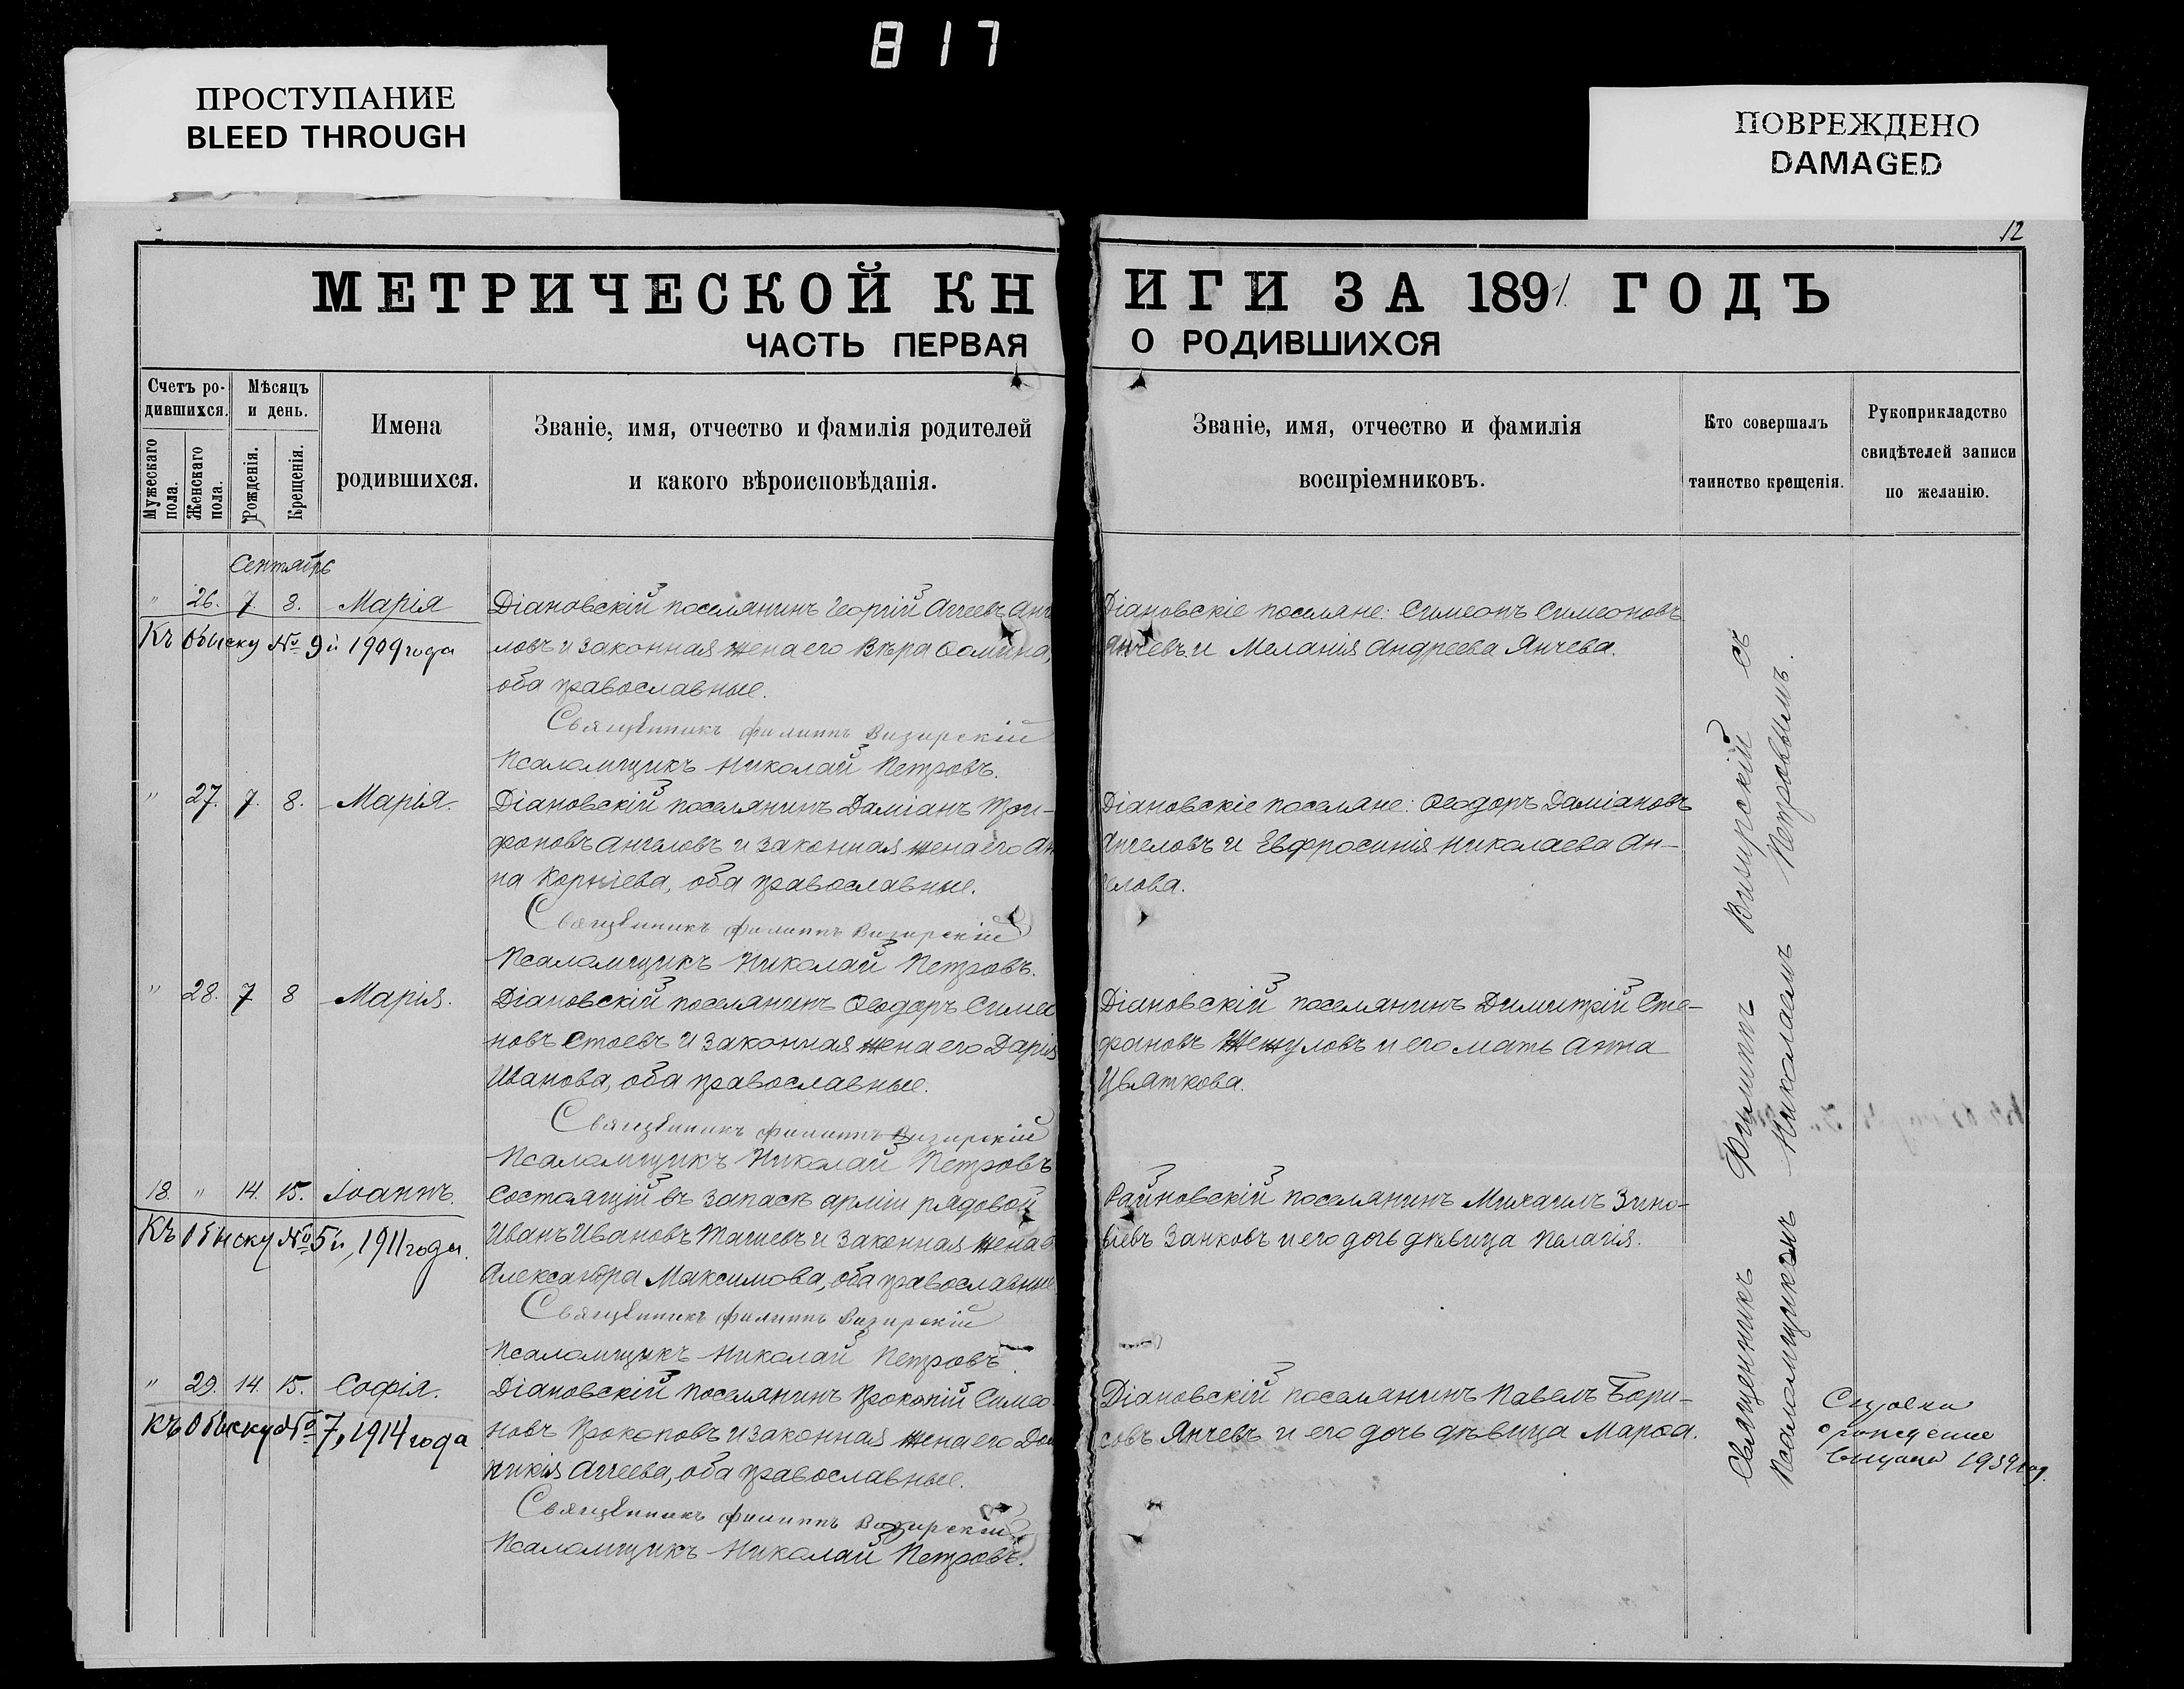 817
ПРОСТУПАНИЕ
BLEED THROUGH
ПОВРЕЖДЕНО
DAMAGED
12
МЕТРИЧЕСКОЙ КН
ИГИ ЗА 1891 ГОДЪ
ЧАСТЬ ПЕРВАЯ
О РОДИВШИХСЯ
Счетъ ро-
дившихся.
Мужескаго пола.
Женскаго пола.
Мѣсяцъ
и день.
Рожденія.
Крещенія.
Имена
родившихся.
Званіе, имя, отчество и фамилія родителей
и какого вѣроисповѣданія.
Званіе, имя, отчество и фамилія
воспріемниковъ.
Кто совершалъ
таинство крещенія.
Рукоприкладство
свидѣтелей записи
по желанію.
Сентябрь
" 26. 7. 8. Марія
Къ обыску № 9й 1909 года
Діановскій поселянинъ Георгій Аггеевъ Анге
ловъ и законная жена его Вѣра Ѳомина,
оба православные.
Священникъ Филиппъ Визирскій
Псаломщикъ Николай Петровъ.
Діановскіе поселяне: Симеонъ Симеоновъ
Янчевъ и Меланія Андреева Янчева.
" 27. 7. 8. Марія.
Діановскій поселянинъ Даміанъ Три-
фоновъ Ангеловъ и законная жена его Ан
на Корніева, оба православные.
Священникъ Филиппъ Визирскій
Псаломщикъ Николай Петровъ.
Діановскіе поселяне: Ѳеодоръ Даміановъ
Ангеловъ и Евфросинія Николаева Ан-
гелова.
" 28. 7 8 Марія.
Діановскій поселянинъ Ѳеодоръ Симео
новъ Стоевъ и законная жена его Дарія
Иванова, оба православные.
Священникъ Филиппъ Визирскій
Псаломщикъ Николай Петровъ
Діановскій поселянинъ Димитрій Сте-
фановъ Жежуловъ и его мать Анна
Цвяткова.
18. " 14. 15. Іоаннъ.
Къ обыску № 5й, 1911 года.
Состоящій въ запасѣ арміи рядовой
Иванъ Ивановъ Ташевъ и законная жена е
Александра Максимова, оба православные
Священникъ Филиппъ Визирскій
Псаломщикъ Николай Петровъ.
Райновскій поселянинъ Михаилъ Зино-
віевъ Занковъ и его дочь дѣвица Пелагія.
" 29. 14. 15. Софія.
Къ обыску № 7, 1914 года
Діановскій поселянинъ Прокопій Симео
новъ Прокоповъ и законная жена его Дом
никія Аггеева, оба православные.
Священникъ Филиппъ Визирскій
Псаломщикъ Николай Петровъ.
Діановскій поселянинъ Павелъ Бори-
совъ Янчевъ и его дочь дѣвица Марѳа.
Священникъ Филиппъ Визирскій съ
Псаломщикомъ Николаемъ Петровымъ.
о рождение
1939 год.